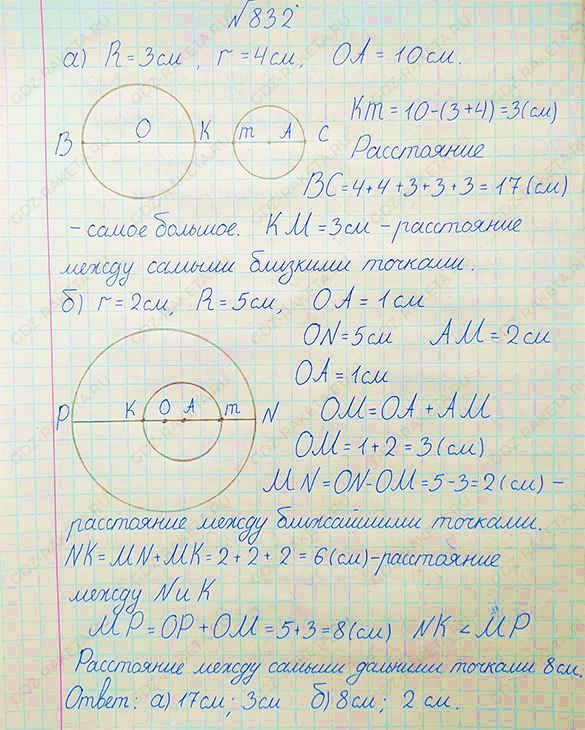 №832
а) R=3см, r=4см, OA=10см.
B O K m A C
Km=10-(3+4)=3(см)
Расстояние
BC=4+4+3+3+3=17(см)
-самое большое. KM=3см-расстояние
между самыми близкими точками.
б) r=2см, R=5см, OA=1см
ON=5см AM=2см
OA=1см
P K O A m N
OM=OA+AM
OM=1+2=3(см)
MN=ON-OM=5-3=2(см)-
расстояние между ближайшими точками.
NK=MN+MK=2+2+2=6(см)-расстояние
между N и K
MP=OP+OM=5+3=8(см) NK<MP
Расстояние между самыми дальними точками 8см.
Ответ: а) 17см; 3см б) 8см; 2см.
GDZ-RAKETA.RU